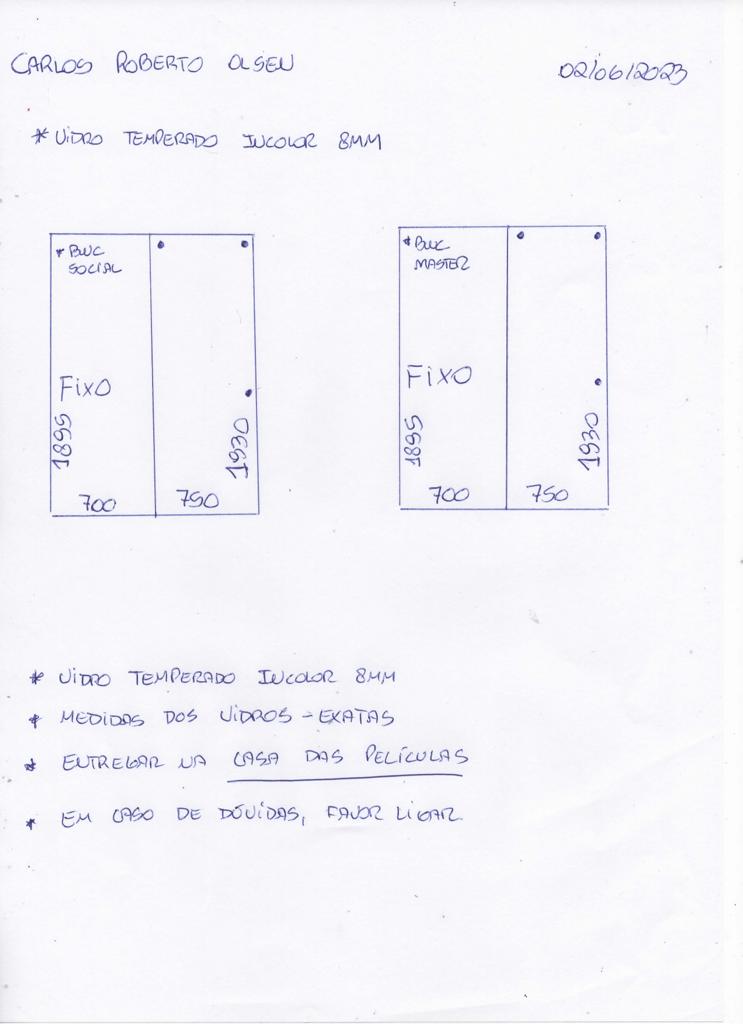 CARLOS ROBERTO OLSEN
02/06/2023
* VIDRO TEMPERADO INCOLOR 8MM
* BWC
SOCIAL
FIXO
1895
700
750
1930
* BWC
MASTER
FIXO
1895
700
750
1930
* VIDRO TEMPERADO INCOLOR 8MM
* MEDIDAS DOS VIDROS - EXATAS
* ENTREGAR NA CASA DAS PELÍCULAS
* EM CASO DE DÚVIDAS, FAVOR LIGAR.